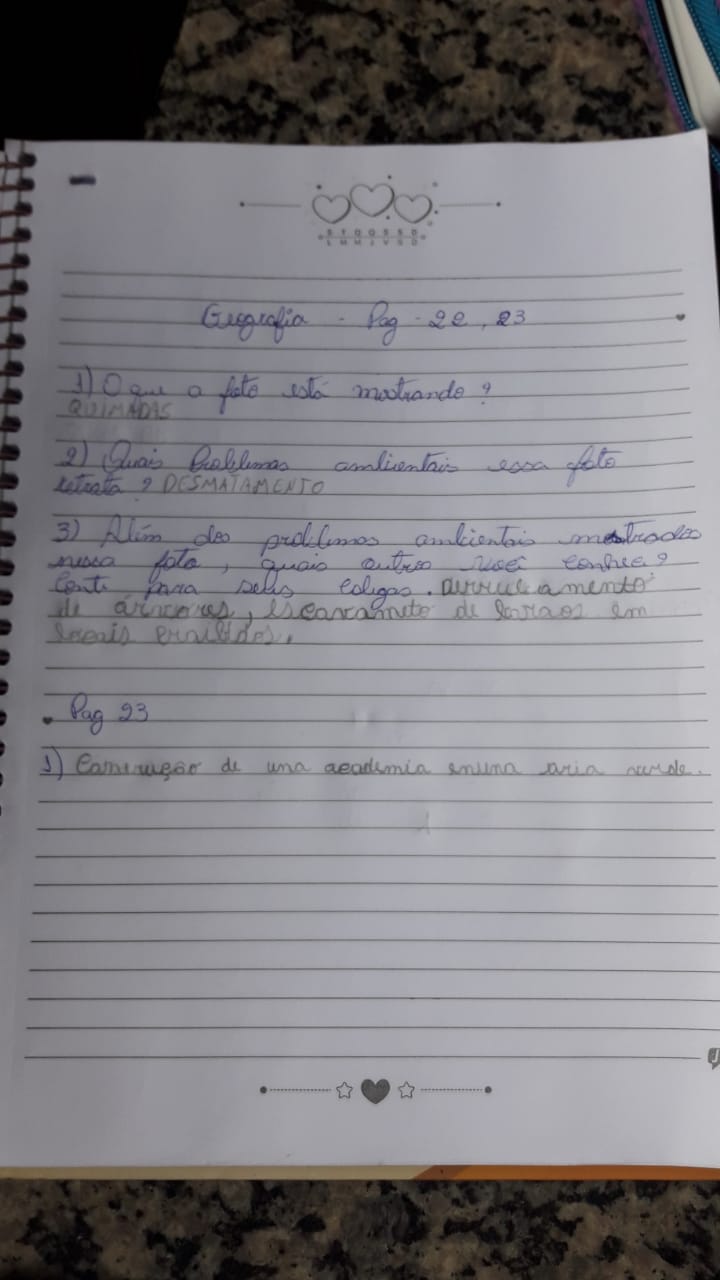 S T Q Q S S D
L M M J V S D
Geografia - Pag - 22, 23
1) O que a foto está mostrando?
QUIMADAS
2) Quais Problemas ambientais essa foto
retrata? DESMATAMENTO
3) Além dos problemas ambientais mostrados
nessa foto, quais outros você conhece?
Conte para seus colegas.
de árvores, de em
locais
Pag 23
1) Construção de una academia aria verde.